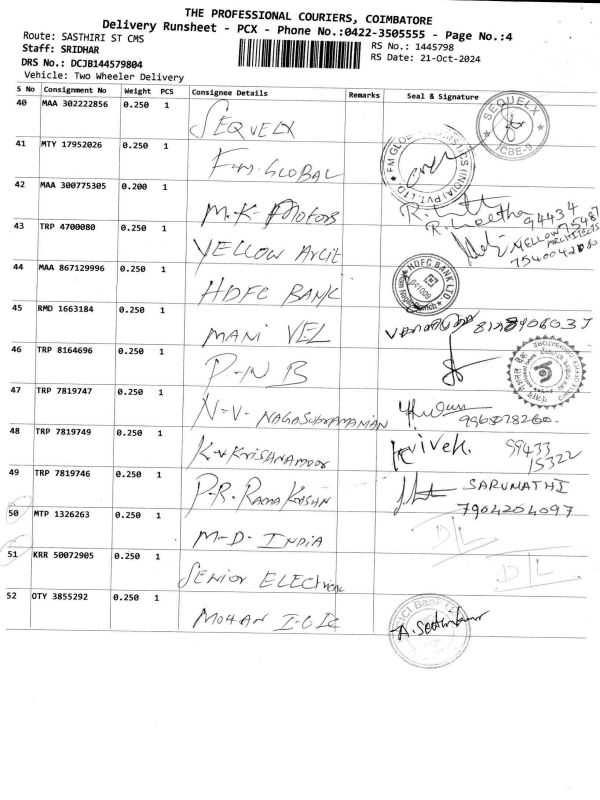 THE PROFESSIONAL COURIERS, COIMBATORE
Delivery Runsheet - PCX - Phone No.:0422-3505555 - Page No.:4
Route: SASTHIRI ST CMS
Staff: SRIDHAR
DRS No.: DCJB144579804
Vehicle: Two Wheeler Delivery
RS No.: 1445798
RS Date: 21-Oct-2024
S No Consignment No Weight PCS Consignee Details Remarks Seal & Signature
40 MAA 302222856 0.250 1 SEQUELX
SEQUELX
CBE-9
41 MTY 17952026 0.250 1 F-M-GLOBAL
FM GLOBAL LOGISTICS (INDIA) PVT. LTD.
42 MAA 300775305 0.200 1 M-K- MOTORS
R. Neetha 94434
75487
43 TRP 4700080 0.250 1 YELLOW Arcit
YELLOW
ARCHITECTS
7540042080
44 MAA 867129996 0.250 1 HDFC BANK
HDFC BANK LTD
641009
45 RMD 1663184 0.250 1 MANI VEL
46 TRP 8164696 0.250 1 P-N B
47 TRP 7819747 0.250 1 N-V- NAGASUBRAMANIAN
48 TRP 7819749 0.250 1 K-V KRISHNAMOOR
Vivek. 99433
15322
49 TRP 7819746 0.250 1 P-R. RAMA KRISHN
SARUNATHI
7904204097
50 MTP 1326263 0.250 1 M-D- INDIA
D/L
51 KRR 50072905 0.250 1 SENIOR ELECtrical
D/L
52 OTY 3855292 0.250 1 MOHAN I-C IC